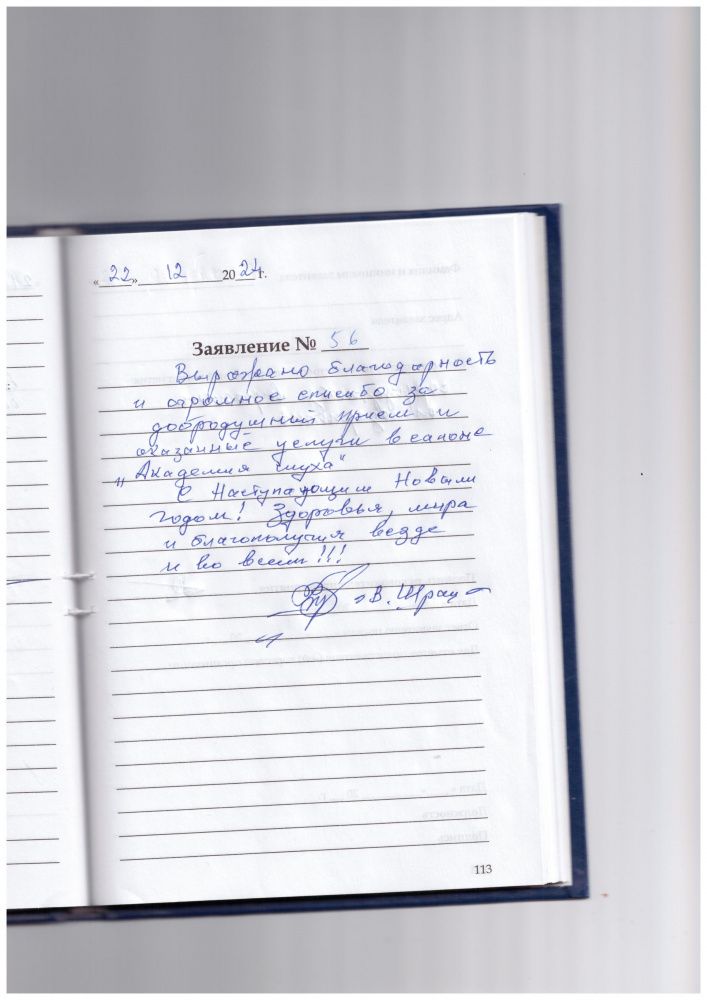 «22» 12 2024 г.
Заявление № 56
Выражаю благодарность
и огромное спасибо за
добродушный прием и
оказанные услуги в салоне
„Академия слуха"
С Наступающим Новым
годом! Здоровья, мира
и благополучия везде
и во всем!!!
В.
113